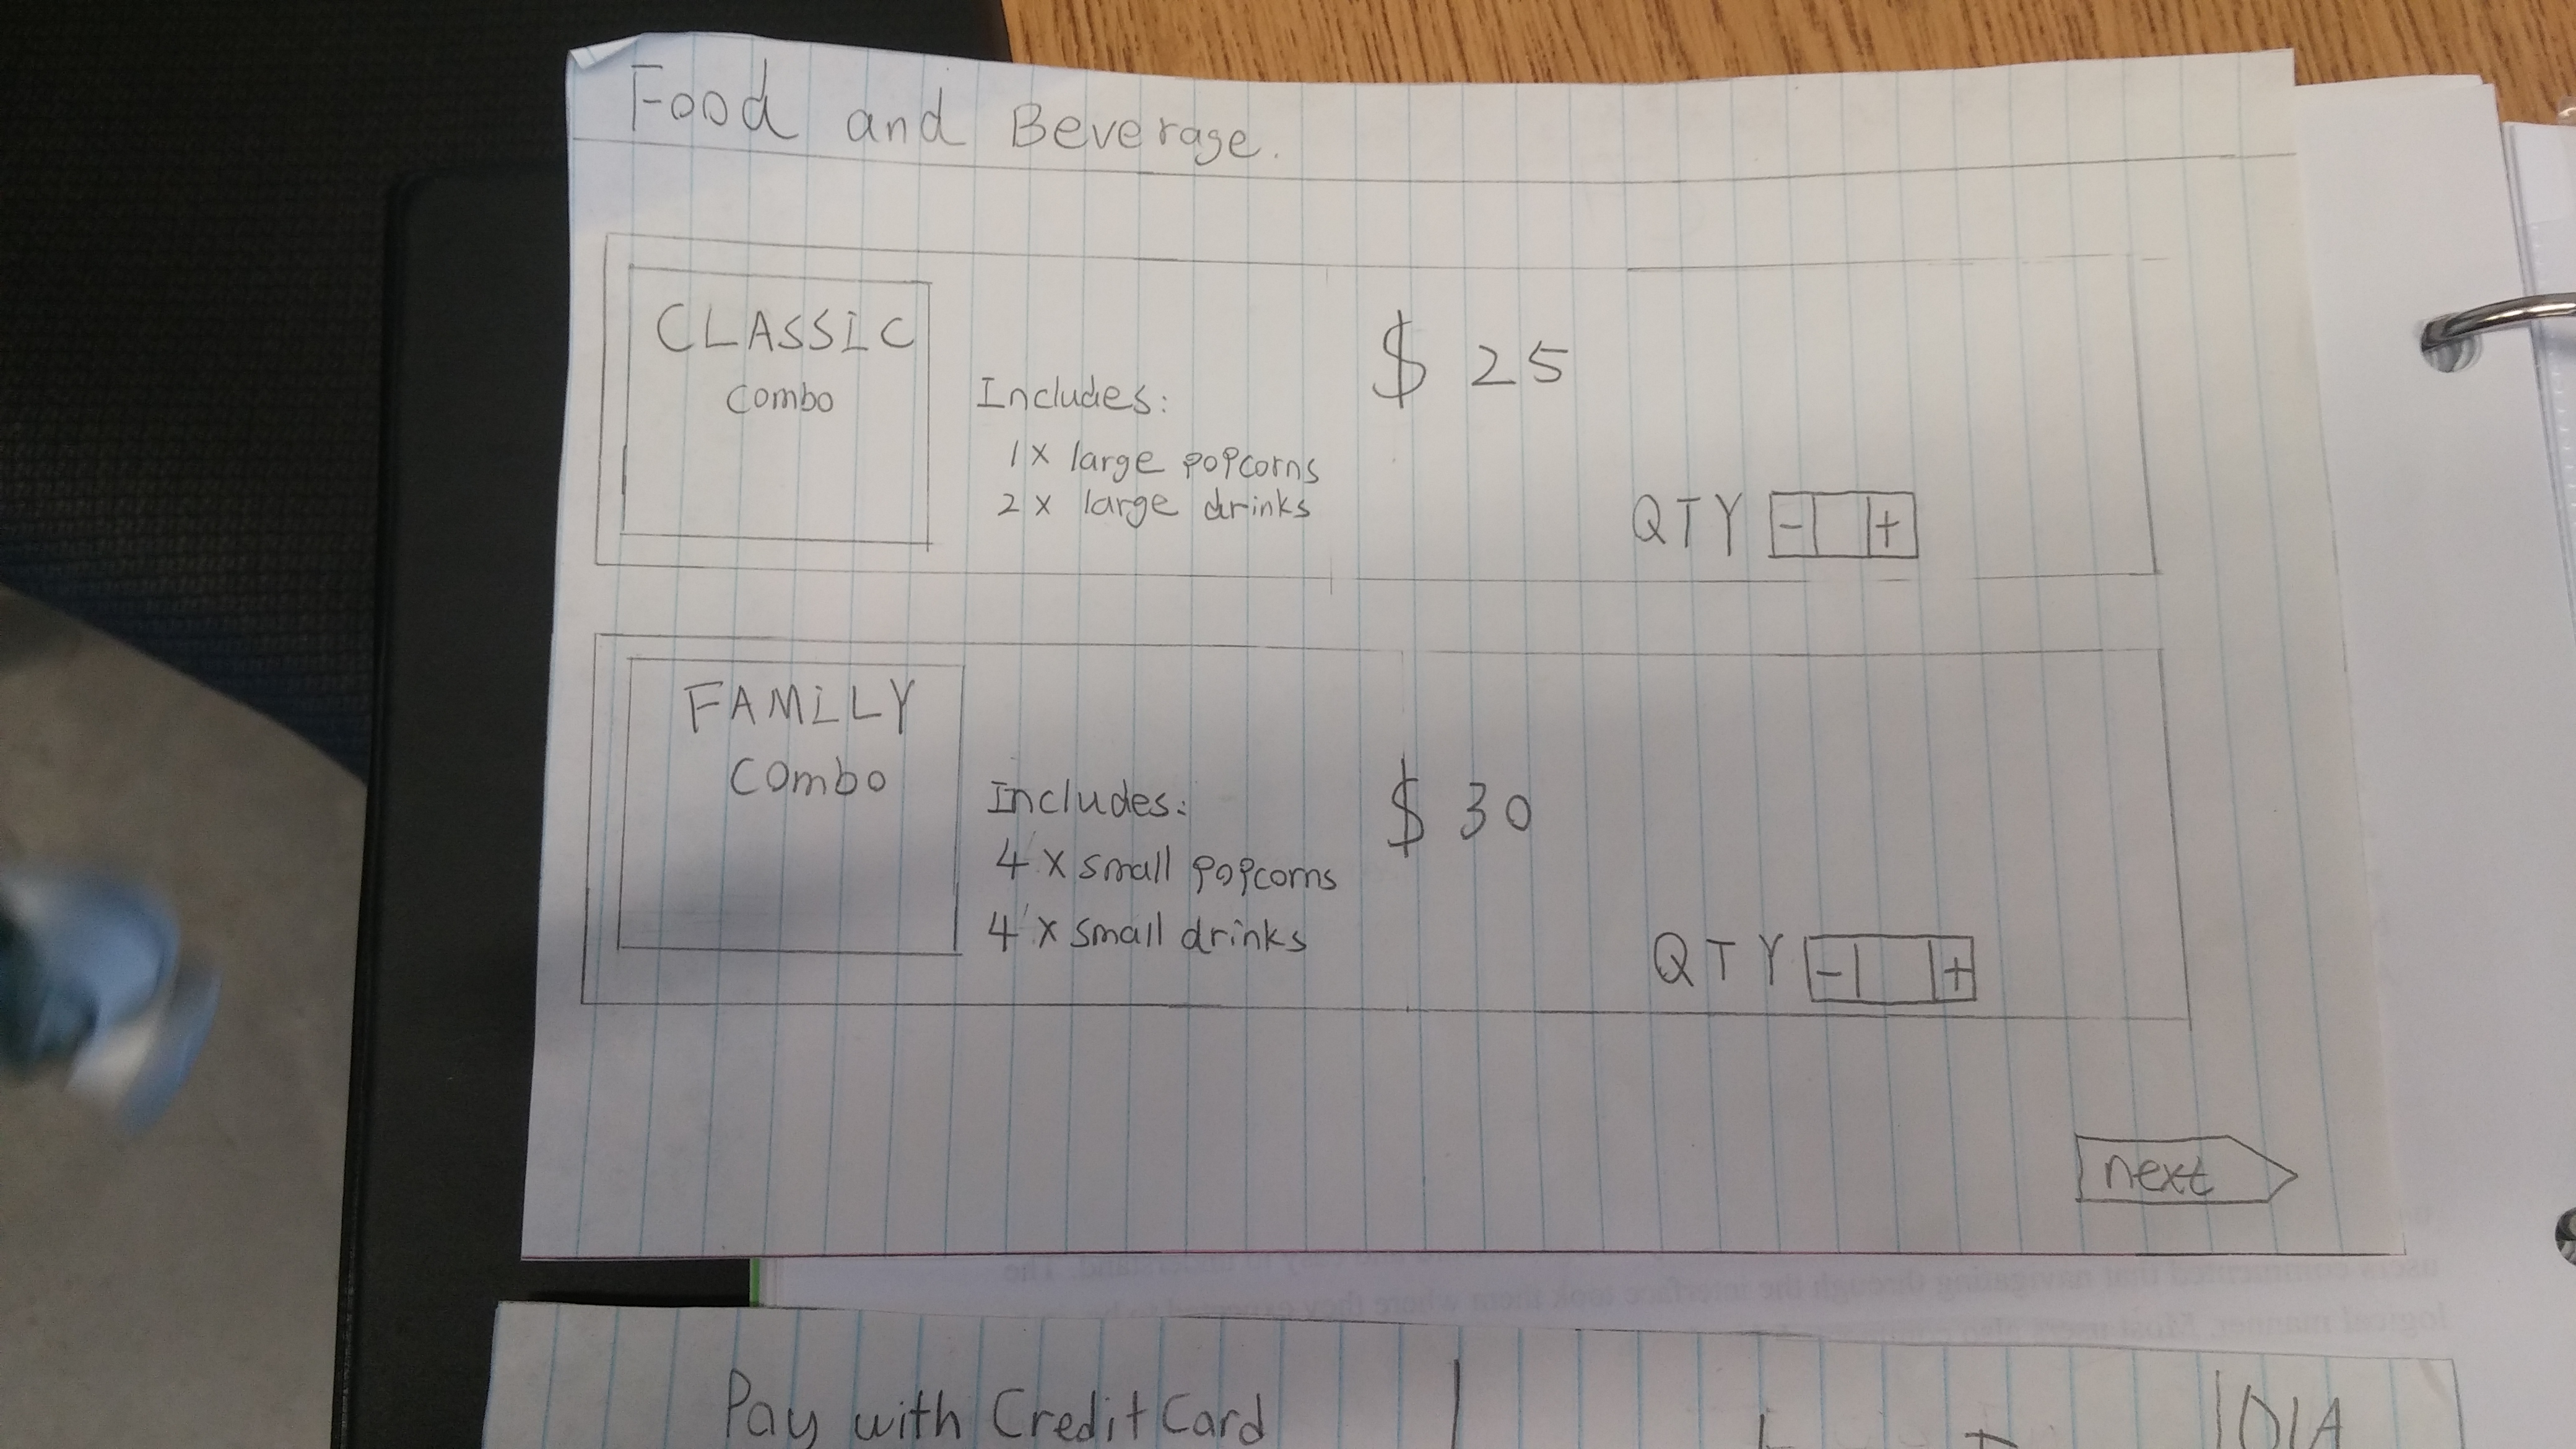 Food and Beverage.
CLASSIC
combo
Includes:
1 x large popcorns
2 x large drinks
$ 25
QTY - +
FAMILY
Combo
Includes:
4 x small popcorns
4 x small drinks
$ 30
QTY - +
next
Pay with Credit Card